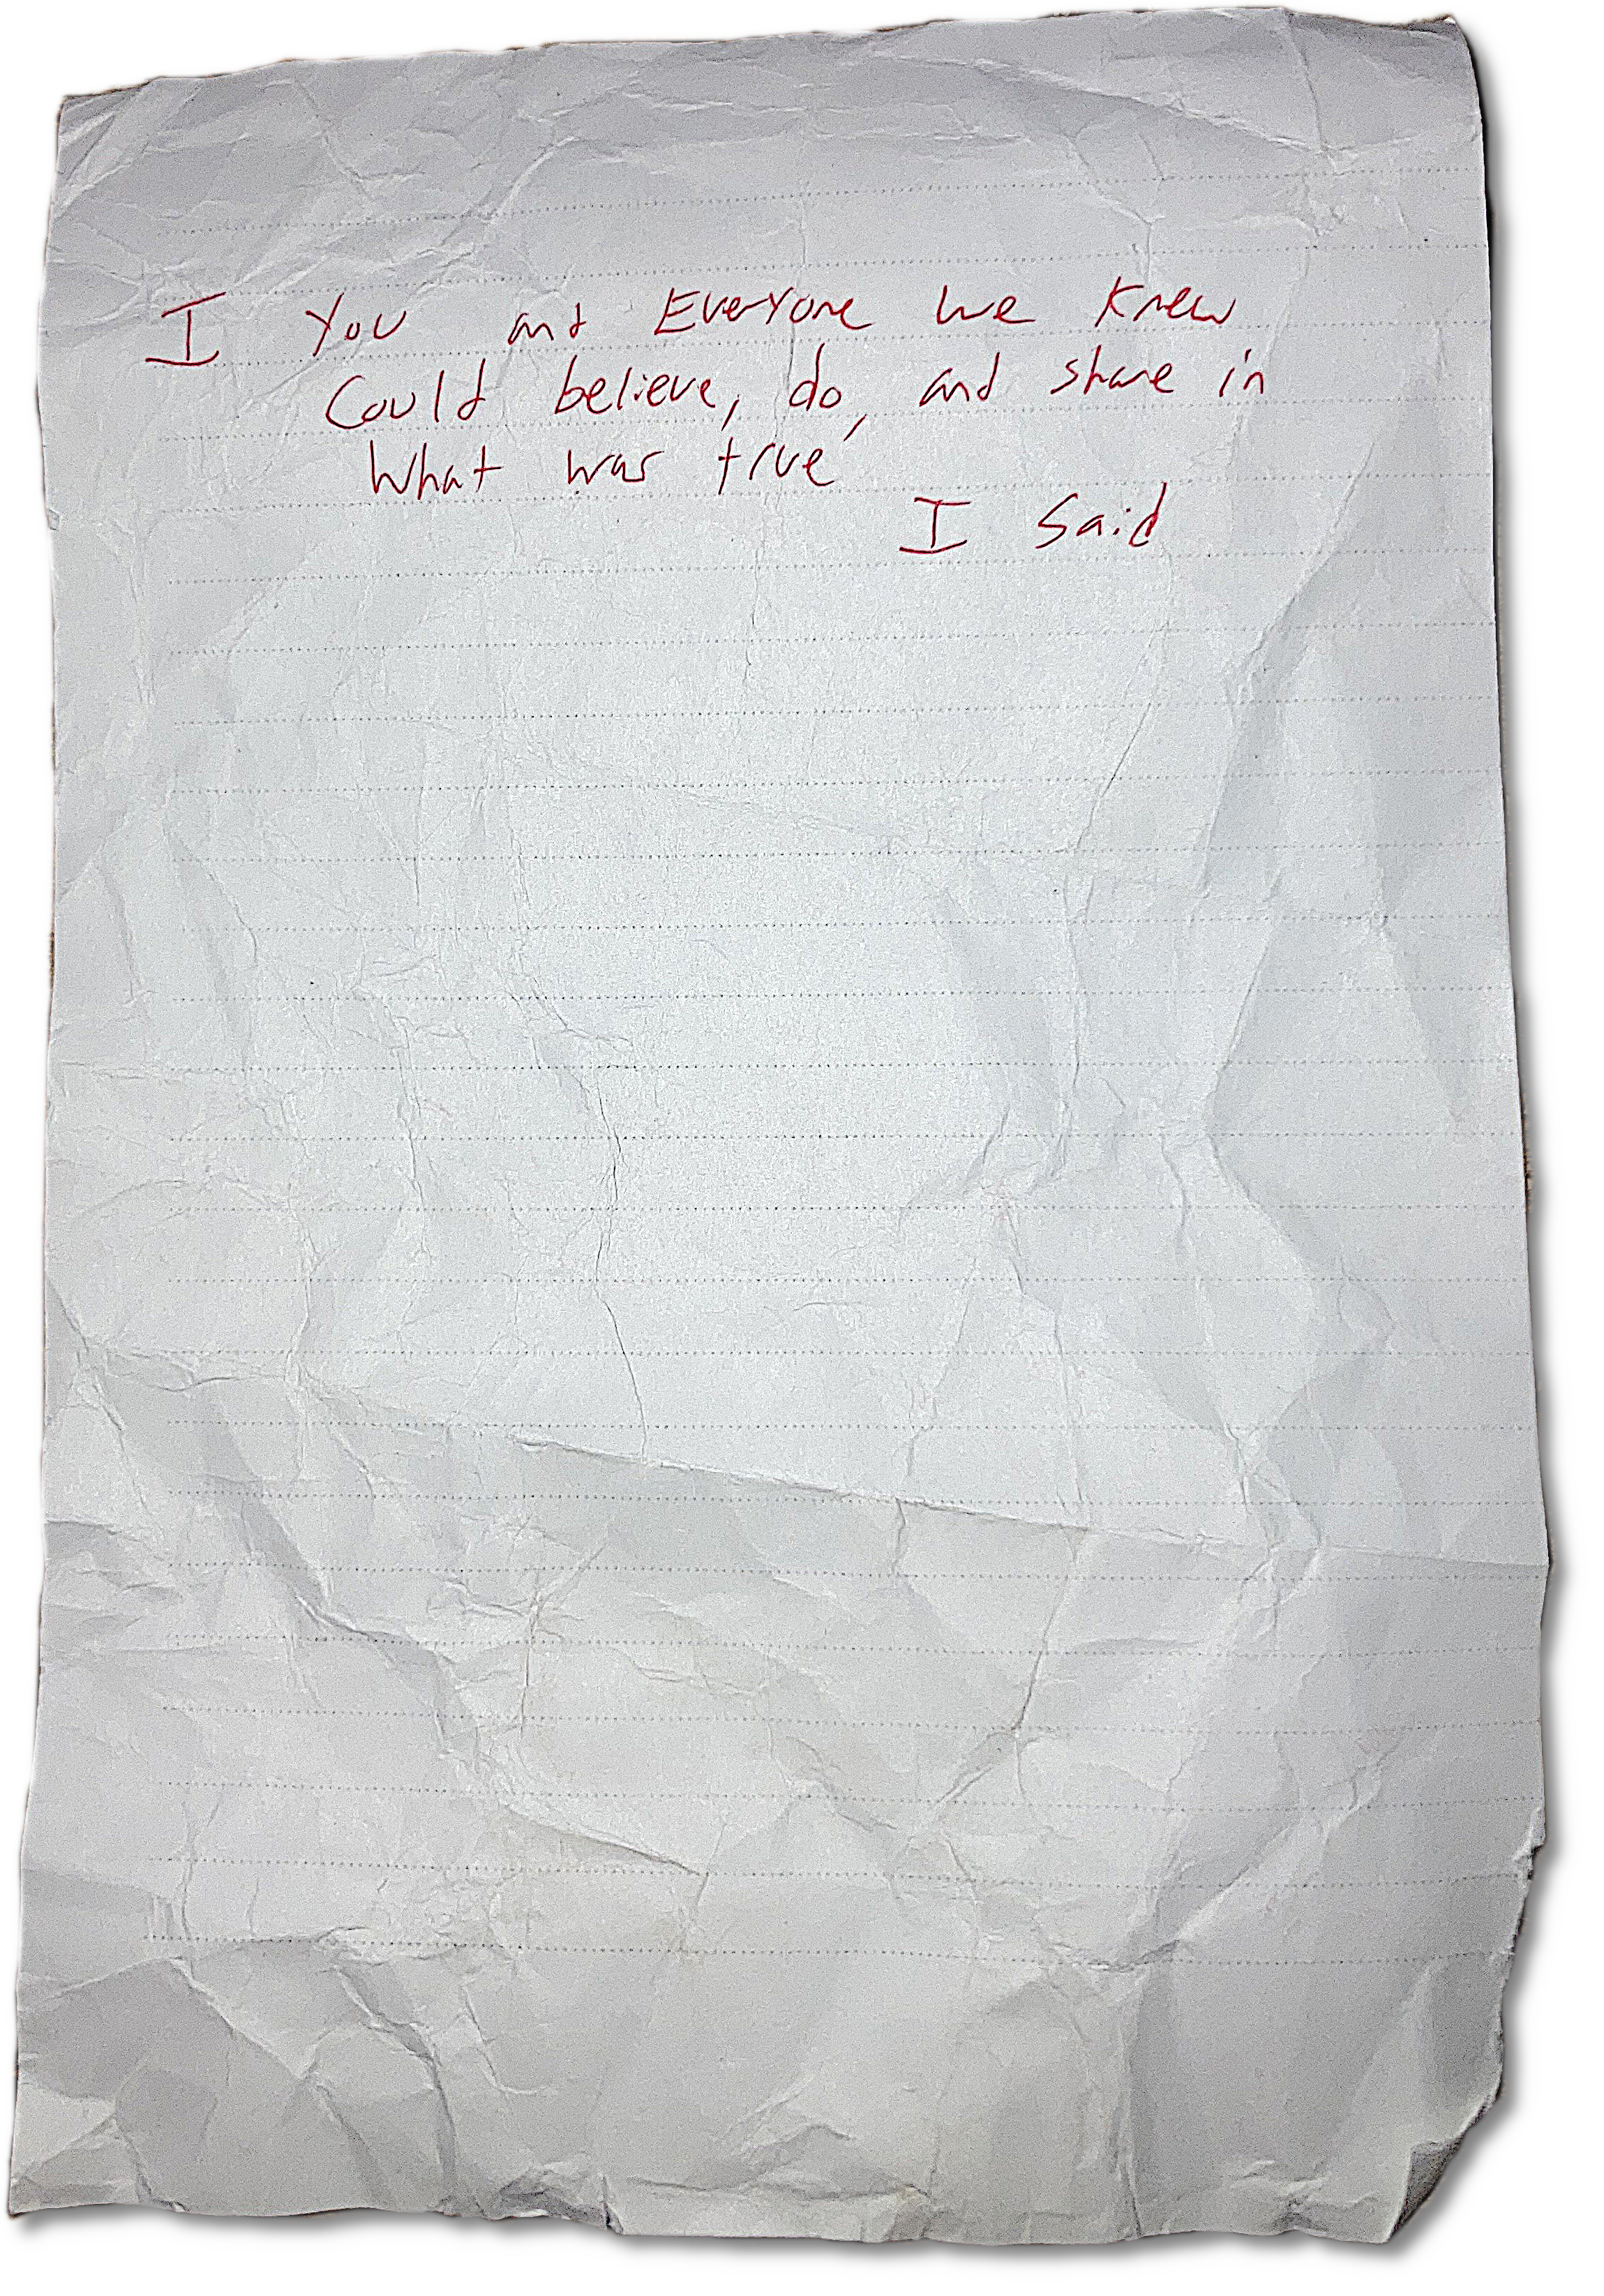 I You and Everyone we knew
Could believe, do, and share in
What was true
I Said